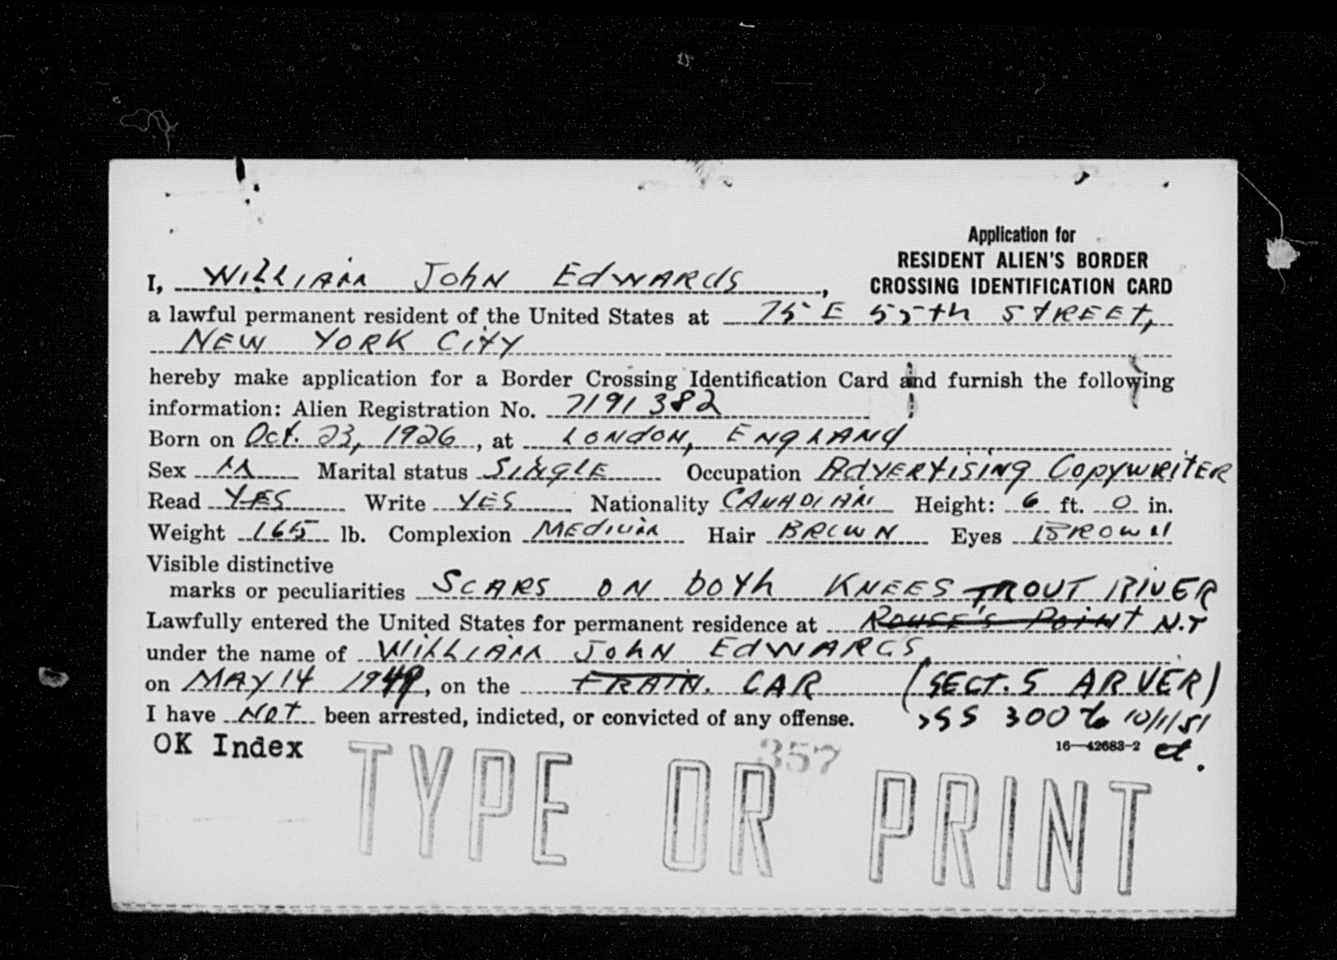 Application for
RESIDENT ALIEN'S BORDER
CROSSING IDENTIFICATION CARD
I, WILLIAM JOHN EDWARDS,
a lawful permanent resident of the United States at 75 E 55TH STREET,
NEW YORK CITY
hereby make application for a Border Crossing Identification Card and furnish the following
information: Alien Registration No. 7191382
Born on Oct. 23, 1926, at LONDON, ENGLAND
Sex M Marital status SINGLE Occupation ADVERTISING COPYWRITER
Read YES Write YES Nationality CANADIAN Height: 6 ft. 0 in.
Weight 165 lb. Complexion MEDIUM Hair BROWN Eyes BROWN
Visible distinctive
marks or peculiarities SCARS ON BOTH KNEES
TROUT RIVER
Lawfully entered the United States for permanent residence at ROUSE'S POINT N.Y
under the name of WILLIAM JOHN EDWARDS
on MAY 14 1949, on the TRAIN. CAR (SECT. 5 AR VER)
I have NOT been arrested, indicted, or convicted of any offense.
300 10/1/51
OK Index 357 16—42683-2
TYPE OR PRINT